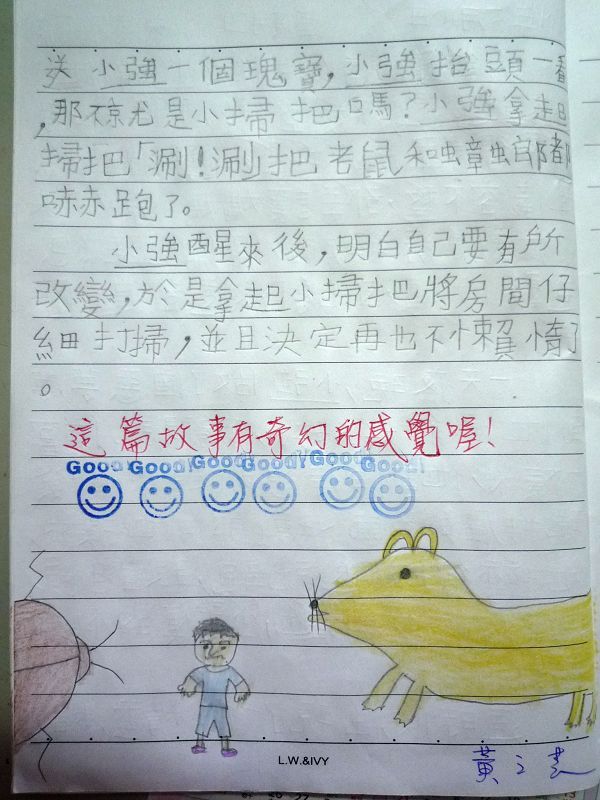 送小強一個瑰寶,小強抬頭一看
,那不就是小掃把嗎?小強拿起
掃把「唰!唰」把老鼠和蟑螂都
嚇跑了。
小強醒來後,明白自己要有所
改變,於是拿起小掃把將房間仔
細打掃,並且決定再也不懶惰了
。
這篇故事有奇幻的感覺喔!
Good! Good! Good! Good! Good! Good!
L.W.&IVY
黃